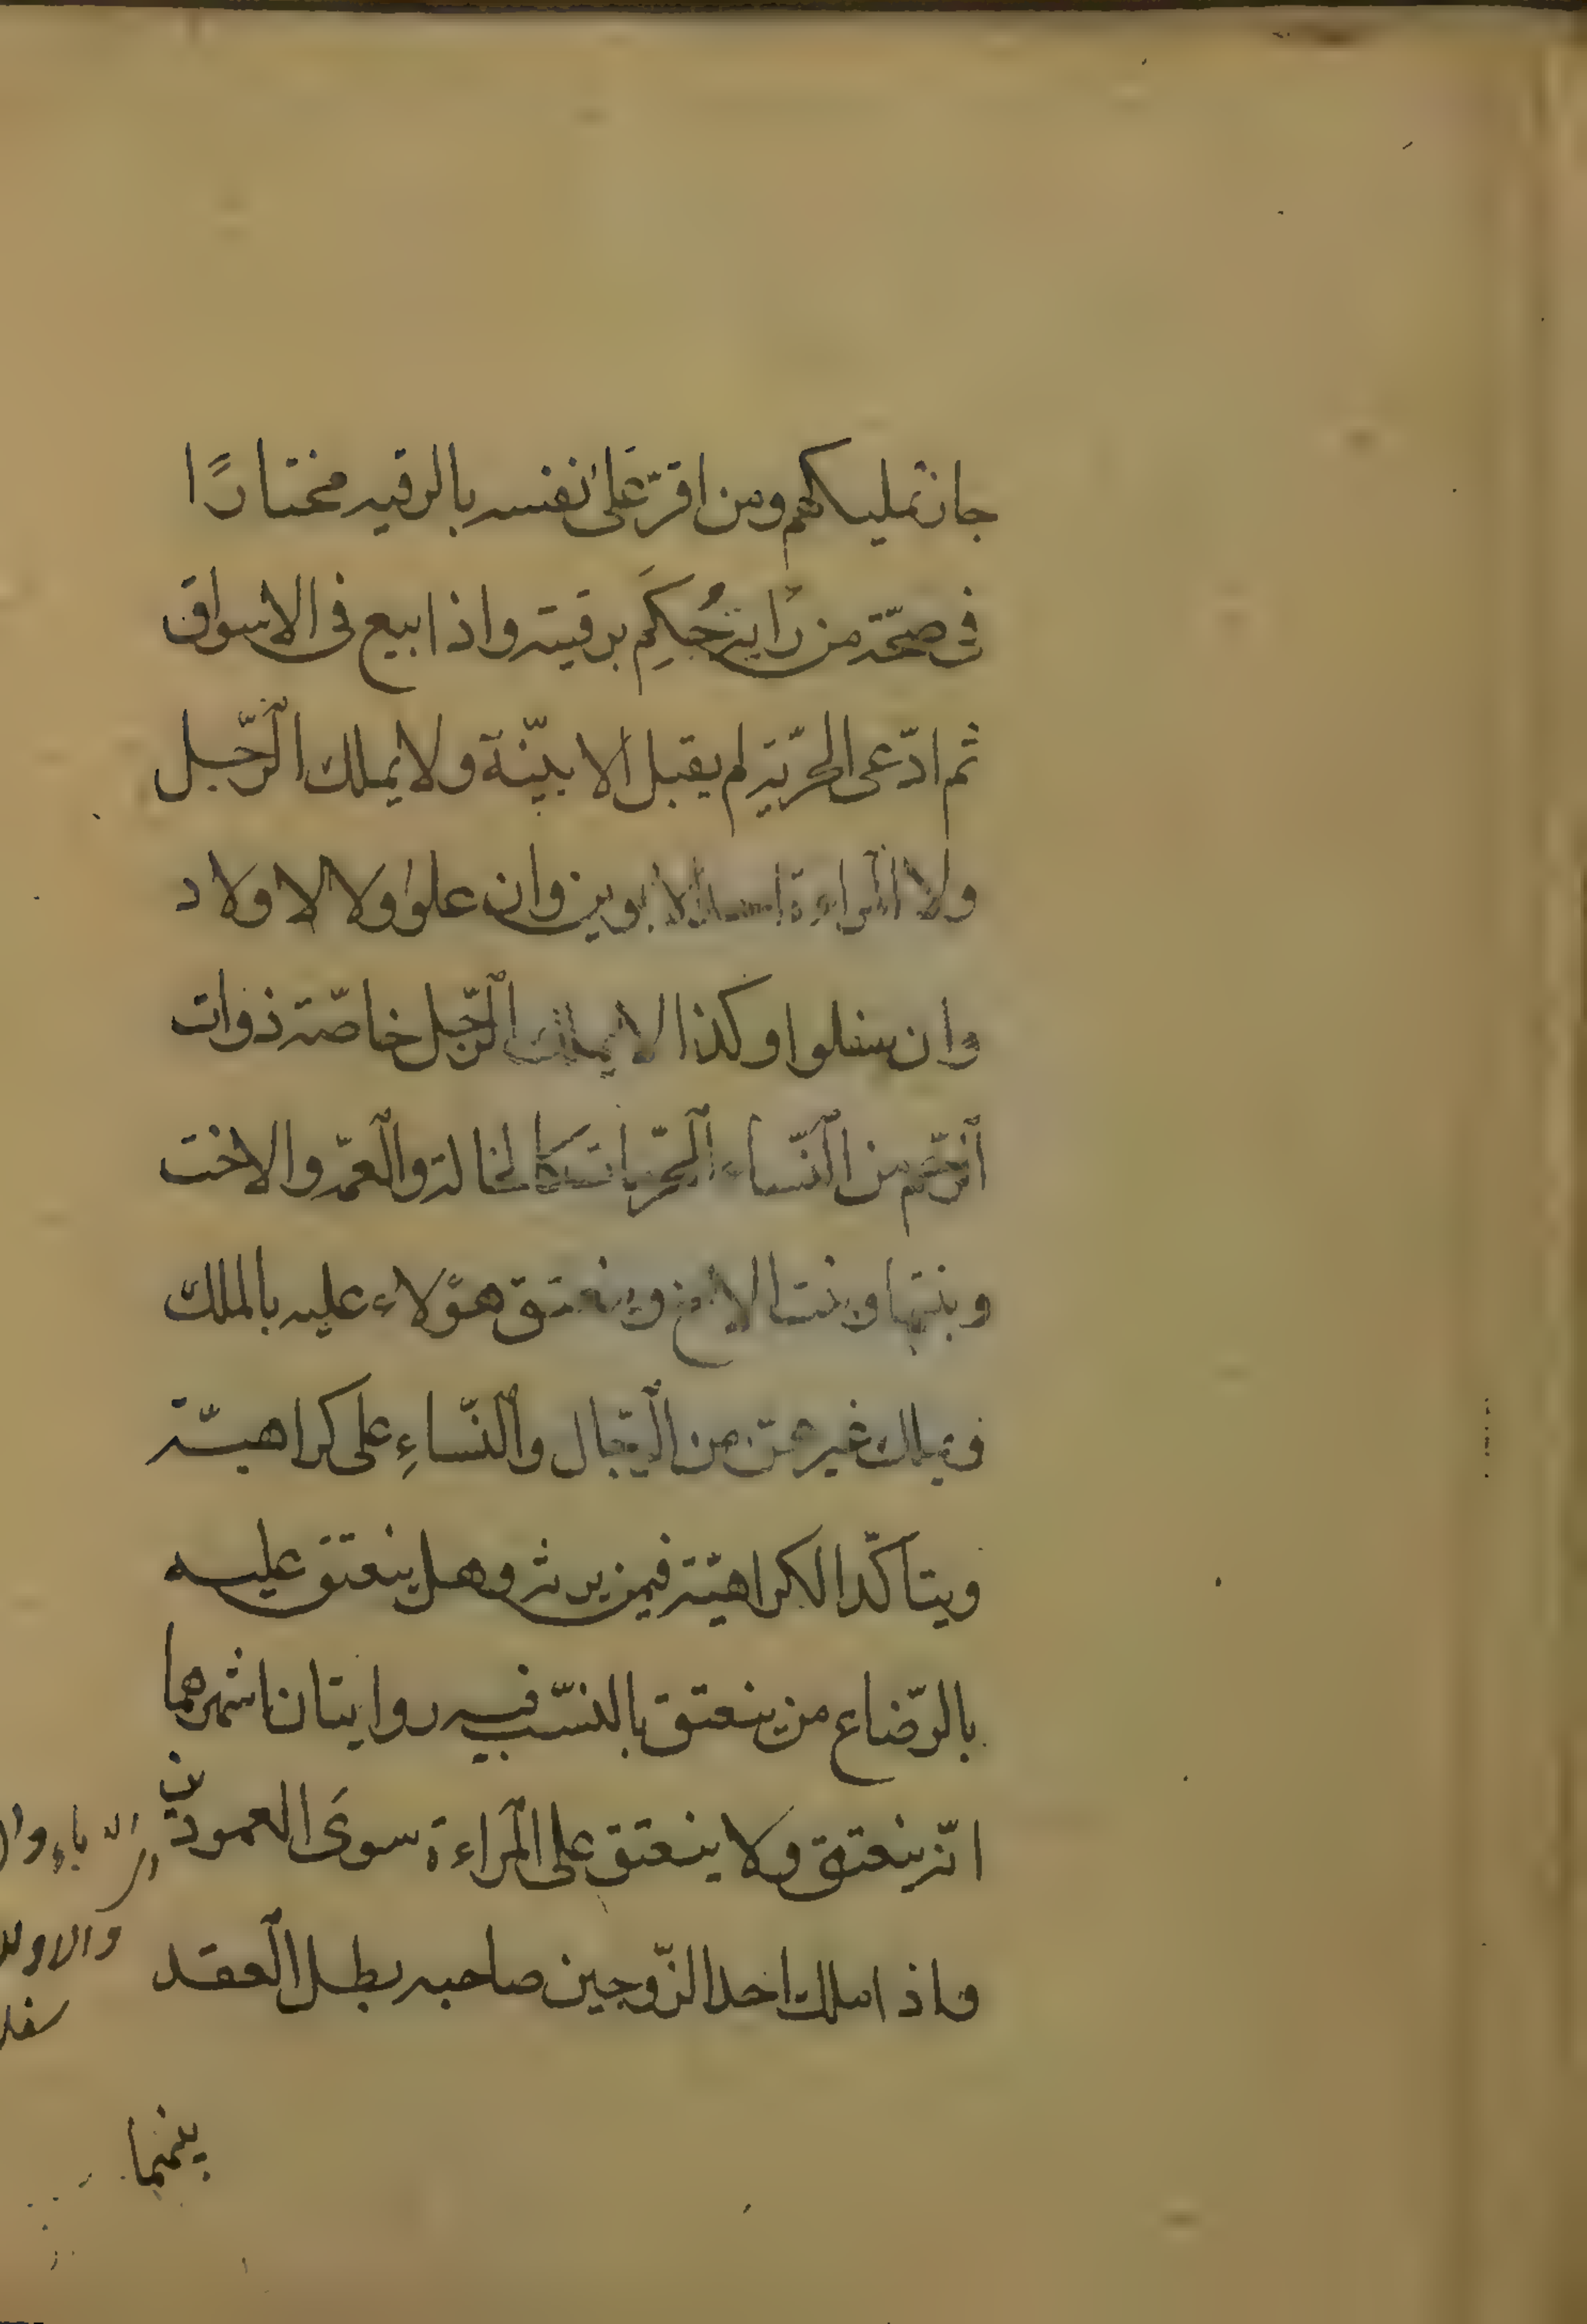 جاز تمليكهم ومن اقرّ على نفسه بالرقيه مختارًا
فى صحّة من رَايه حُكِمَ برقيته واذا بيع فى الاسواق
ثم ادّعى الحرّية لم يقبل الا ببيّنة ولا يملك الرّجل
ولا المراءة الابوين وان علوا ولا الاولاد
وان سفلوا وكذا لا يملك الرّجل خاصّة ذوات
الرّحم من النّساء المحرّمات كالخالة والعمّة والاخت
وبنتها وبنت الاخ وينعتق هؤلاء عليه بالملك
ويملك غيرهنّ من الرّجال والنّساءِ على كراهيّة
ويتأكّد الكراهيّة فيمن يرثه وهل ينعتق عليه
بالرّضاع من ينعتق بالنسّب فيه روايتان اشهرهما
انّه ينعتق ولا ينعتق على المراءة سوى العمودين
واذا ملك احد الزّوجين صاحبه بطل العقد
بينهما